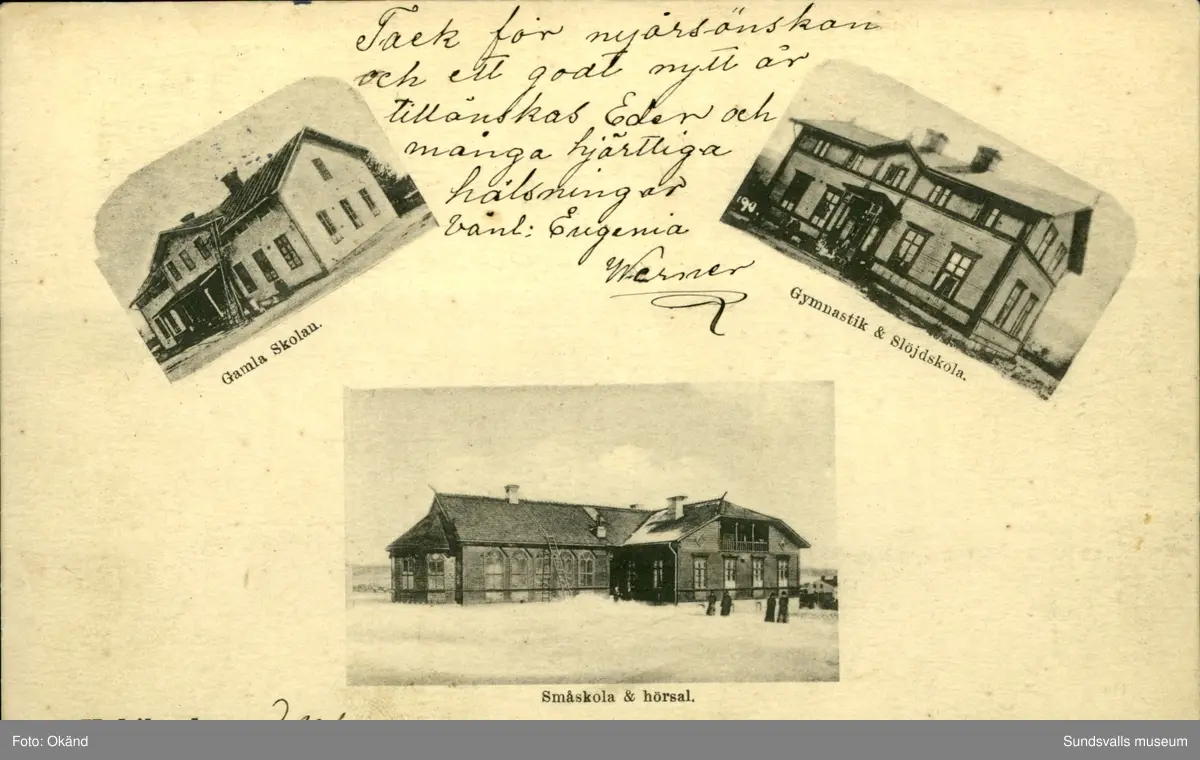 Tack för nyårsönskan
och ett godt nytt år
tillönskas Eder och
många hjärttliga
hälsningar
Vänl: Eugenia
Werner
190.
Gamla Skolan.
Gymnastik & Slöjdskola.
Småskola & hörsal.
Foto: Okänd
Sundsvalls museum